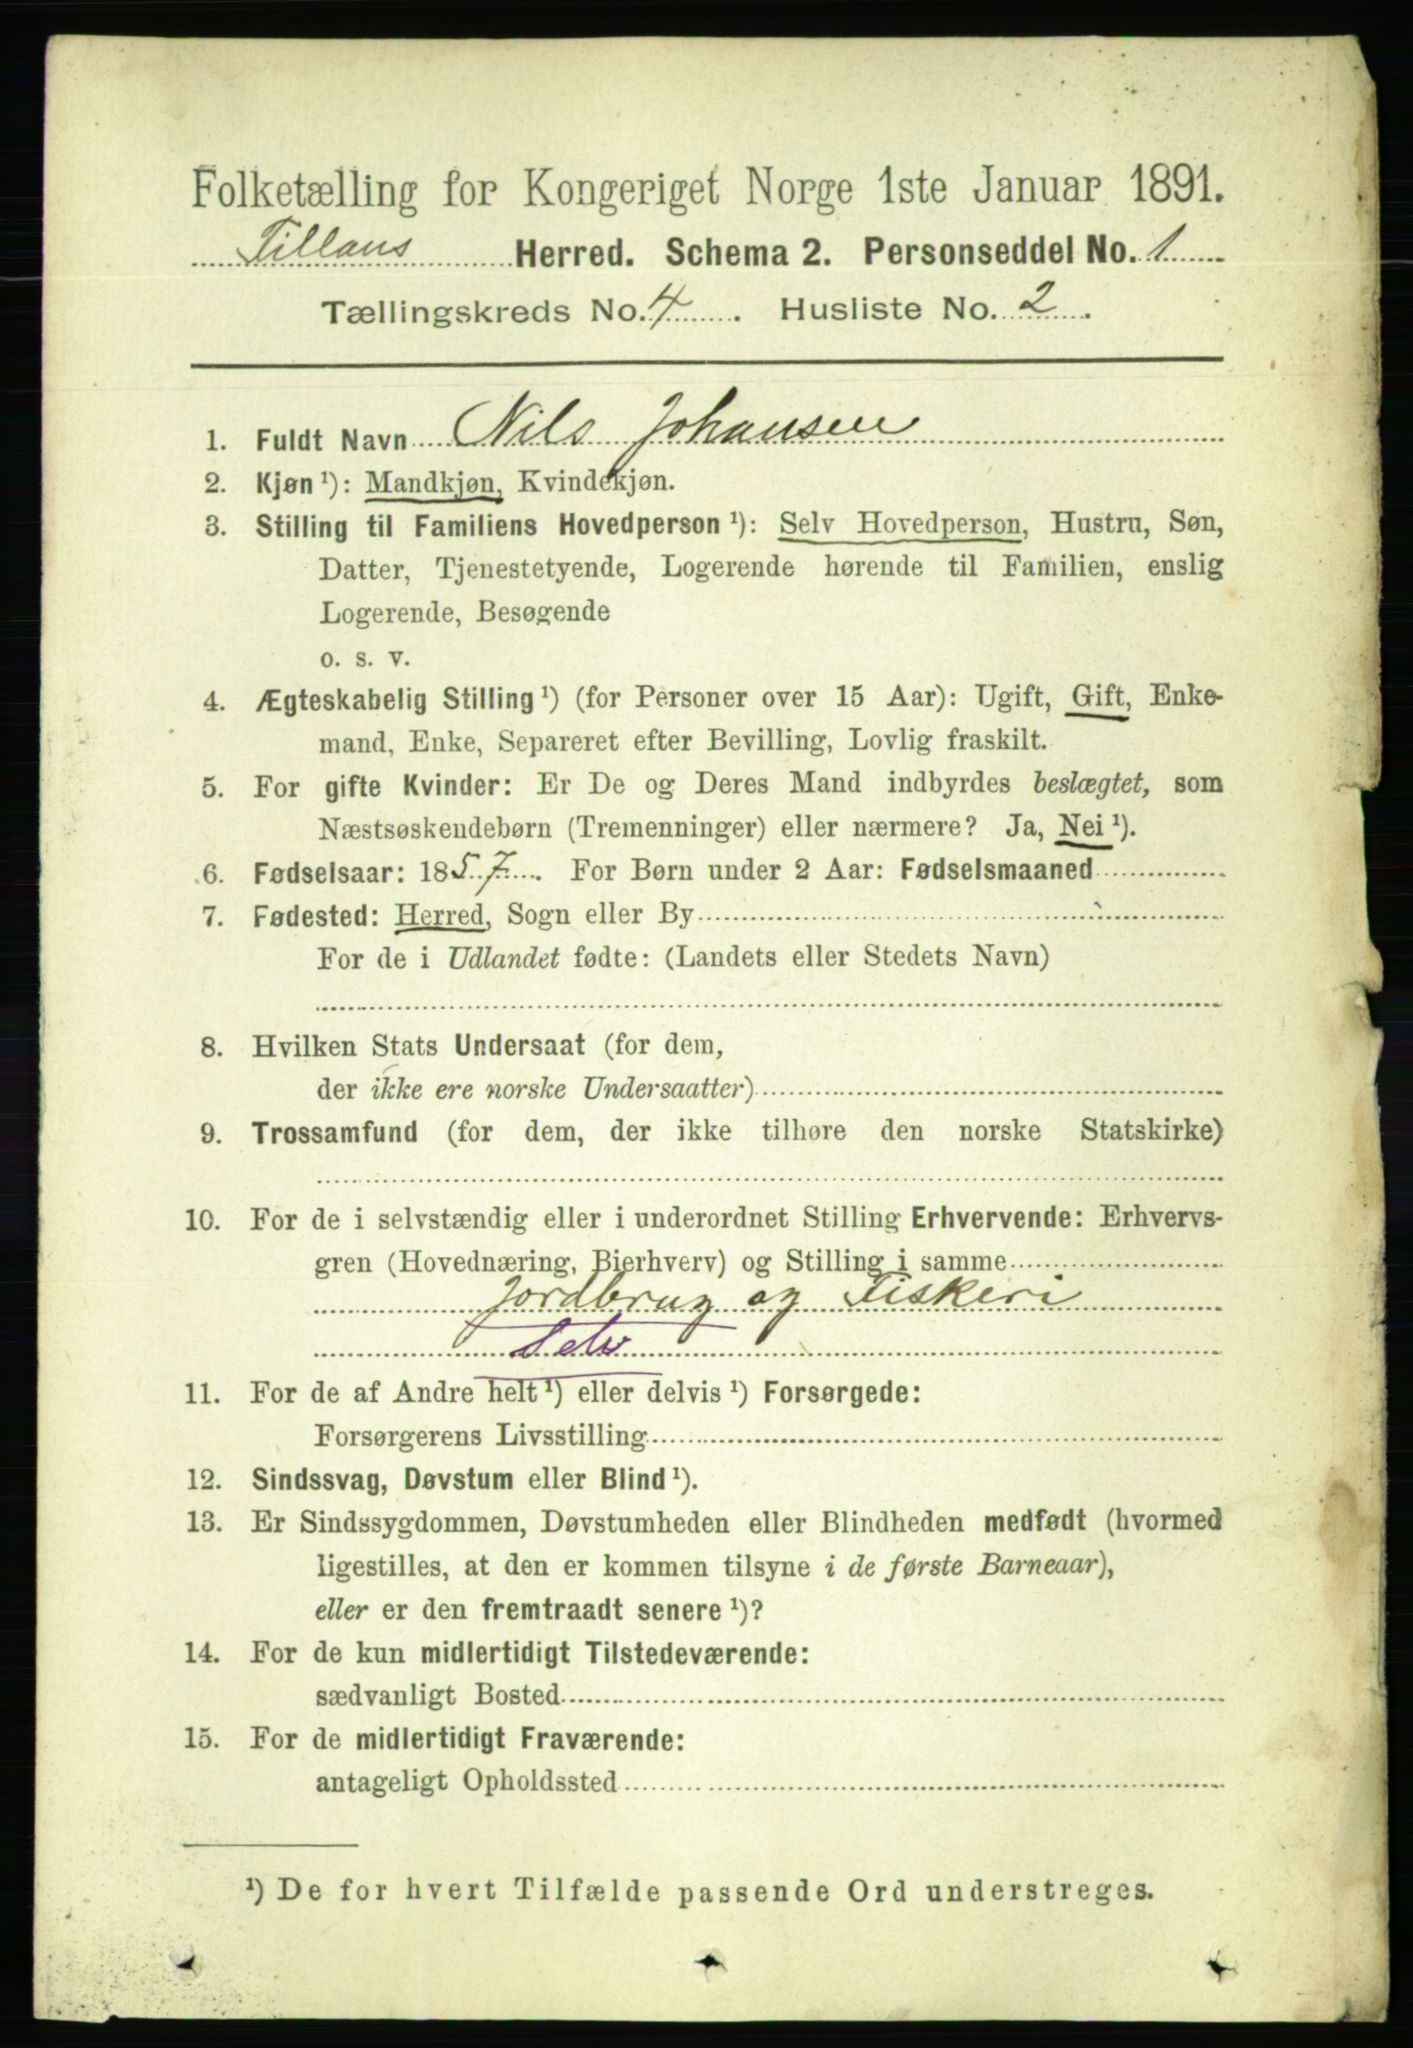 Folketælling for Kongeriget Norge 1ste Januar 1891.
Tillans Herred. Schema 2. Personseddel No. 1
Tællingskreds No. 4. Husliste No. 2.
1. Fuldt Navn Nils Johansen
2. Kjøn ¹): Mandkjøn, Kvindekjøn.
3. Stilling til Familiens Hovedperson ¹): Selv Hovedperson, Hustru, Søn,
Datter, Tjenestetyende, Logerende hørende til Familien, enslig
Logerende, Besøgende
o. s. v.
4. Ægteskabelig Stilling ¹) (for Personer over 15 Aar): Ugift, Gift, Enke-
mand, Enke, Separeret efter Bevilling, Lovlig fraskilt.
5. For gifte Kvinder: Er De og Deres Mand indbyrdes beslægtet, som
Næstsøskendebørn (Tremenninger) eller nærmere? Ja, Nei ¹).
6. Fødselsaar: 1857. For Børn under 2 Aar: Fødselsmaaned
7. Fødested: Herred, Sogn eller By
For de i Udlandet fødte: (Landets eller Stedets Navn)
8. Hvilken Stats Undersaat (for dem,
der ikke ere norske Undersaatter)
9. Trossamfund (for dem, der ikke tilhøre den norske Statskirke)
10. For de i selvstændig eller i underordnet Stilling Erhvervende: Erhvervs-
gren (Hovednæring, Bierhverv) og Stilling i samme
Jordbrug og Fiskeri
Selv
11. For de af Andre helt ¹) eller delvis ¹) Forsørgede:
Forsørgerens Livsstilling
12. Sindssvag, Døvstum eller Blind ¹).
13. Er Sindssygdommen, Døvstumheden eller Blindheden medfødt (hvormed
ligestilles, at den er kommen tilsyne i de første Barneaar),
eller er den fremtraadt senere ¹)?
14. For de kun midlertidigt Tilstedeværende:
sædvanligt Bosted
15. For de midlertidigt Fraværende:
antageligt Opholdssted
¹) De for hvert Tilfælde passende Ord understreges.